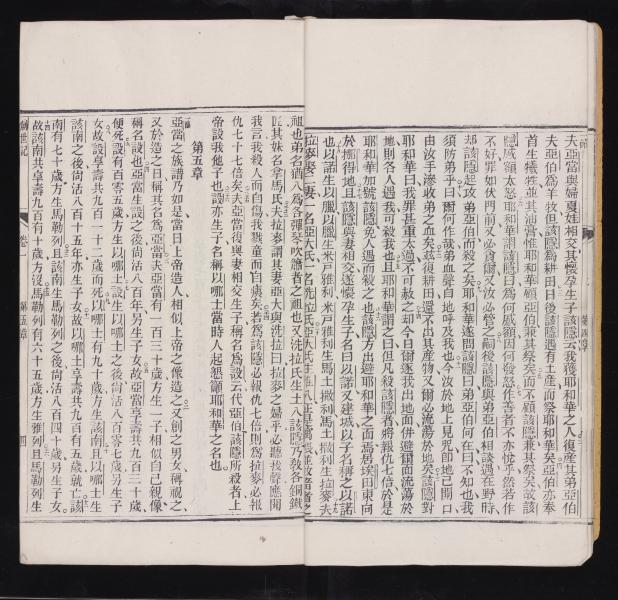 夫亞當與婦夏娃相交其懷孕生子該隱云我獲耶和華之人復產其弟亞伯
夫亞伯為羊牧但該隱為耕田日後該隱遇有土產而祭耶和華矣亞伯亦奉
首生犧牲並其油膏惟耶和華顧亞伯兼其祭矣而不顧該隱兼其祭矣故該
隱慼額太怒耶和華謂該隱曰為何慼額因何發怒作善者不亦悅乎然若作
不好罪如伏門前又必負爾又汝必管之嗣後該隱與弟亞伯相談遇在野時
却該隱起攻弟亞伯而殺之矣耶和華遂問該隱曰弟亞伯何在曰不知也我
須防弟乎曰爾何作哉弟血聲自地呼及我也今汝於地上見咒即地已開口
由汝手滲收弟之血矣茲復耕田還不出其產物又爾必流蕩於地矣該隱對
耶和華曰我罪甚重太過不可赦之却今日爾逐我出地面併避爾面流蕩於
地則各人遇我可殺我也且耶和華謂之曰但凡殺該隱者將報仇七倍於是
耶和華加號該隱免人遇而殺之也該隱方出避耶和華之面焉居埃田東向
於挪得地且該隱與妻相交遂懷孕生子名曰以諾又建城以子名稱之以諾
也以諾生以臘以臘生米戶雅利米戶雅利生馬土撒利馬土撒利生拉麥夫
拉麥娶二妻一名亞大氏一名洗拉氏
祖也弟名猶八為各彈琴吹簫者之祖也又洗拉氏生土八該隱乃教各銅鐵
匠其妹名拿馬氏夫拉麥謂其妻亞大與洗拉曰拉麥之婦乎必聽我聲應聞
我言我殺人而自傷我戮童而自損矣若為該隱必報仇七倍則為拉麥必報
仇七十七倍矣夫亞當復與妻相交生子稱名為設云代亞伯該隱所殺者上
帝設我他子也設亦生子名稱以哪士當時人起懇籲耶和華之名也
第五章
亞當之族譜乃如是當日上帝造人相似上帝之像造之又創之男女稱祝之
又於造之日稱其名為亞當夫亞當有一百三十歲方生一子相似自己親像
稱名設也亞當生設之後尚活八百年另生子女故亞當享壽共九百三十歲
便死設有百零五歲方生以哪士設生以哪士之後尚活八百零七歲另生子
女故設享壽共九百一十二歲而死以哪士有九十歲方生該南且以哪士生
該南之後尚活八百十五年亦生子女故以哪士享壽共九百有五歲就亡該
南有七十歲方生馬勒列且該南生馬勒列之後尚活八百四十歲另生子女
故該南共享壽九百有十歲方沒馬勒列有六十五歲方生雅列且馬勒列生
創世記 卷一 第五章 四